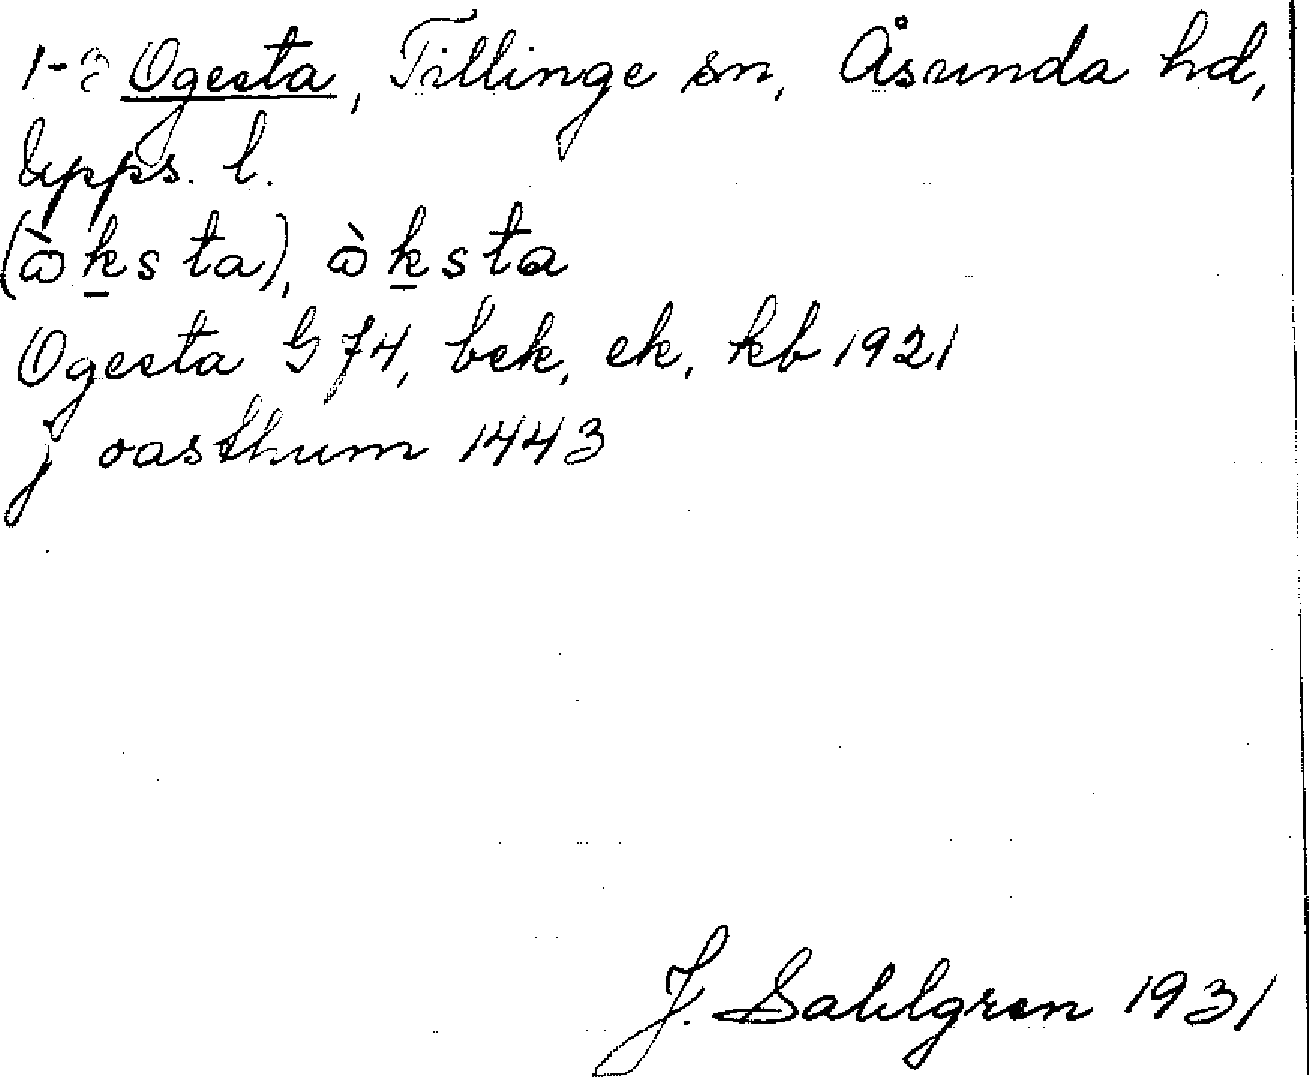 1-2 Ogesta, Tillinge sn, Åsunda hd,
Upps. l.
(ὼksta), ὼksta
Ogesta G 74, bek, ek, kb 1921
j oasthum 1443
J. Sahlgren 1931